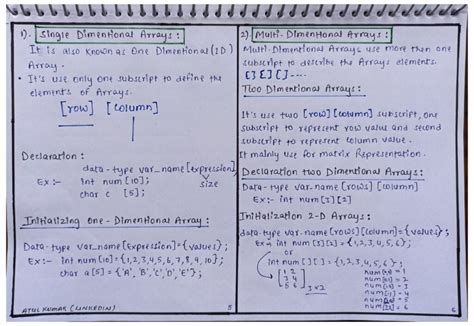 1). Single Dimentional Arrays :
It is also known as One Dimentional (1D)
Array.
• It's use only one subscript to define the
elements of Arrays.
[row] [column]
Declaration :
data-type var_name[expression]
Ex:- int num [10];
char c [5];
size
Initializing one-Dimentional Array :
Data-type var_name[Expression]={values};
Ex:- int num[10]={1,2,3,4,5,6,7,8,9,10};
char a[5]={'A','B','C','D','E'};
ATUL KUMAR (LINKEDIN)
5
2). Multi-Dimentional Arrays :
Multi-Dimentional Arrays use more then one
subscript to describe the Arrays elements.
[] [] [] ----
Two Dimentional Arrays :
It's use two [row] [column] subscript, one
subscript to represent row value and second
subscript to represent column value.
It mainly use for matrix Representation.
Declaration two Dimentional Arrays :
Data-type var_name [rows] [column]
Ex:- int num[3][2]
Initialization 2-D Arrays :
data-type var-name[rows][column]={values};
Ex= int num[3][2]={1,2,3,4,5,6};
or
int num[][]={1,2,3,4,5,6};
1 2
3 4
5 6
3×2
6